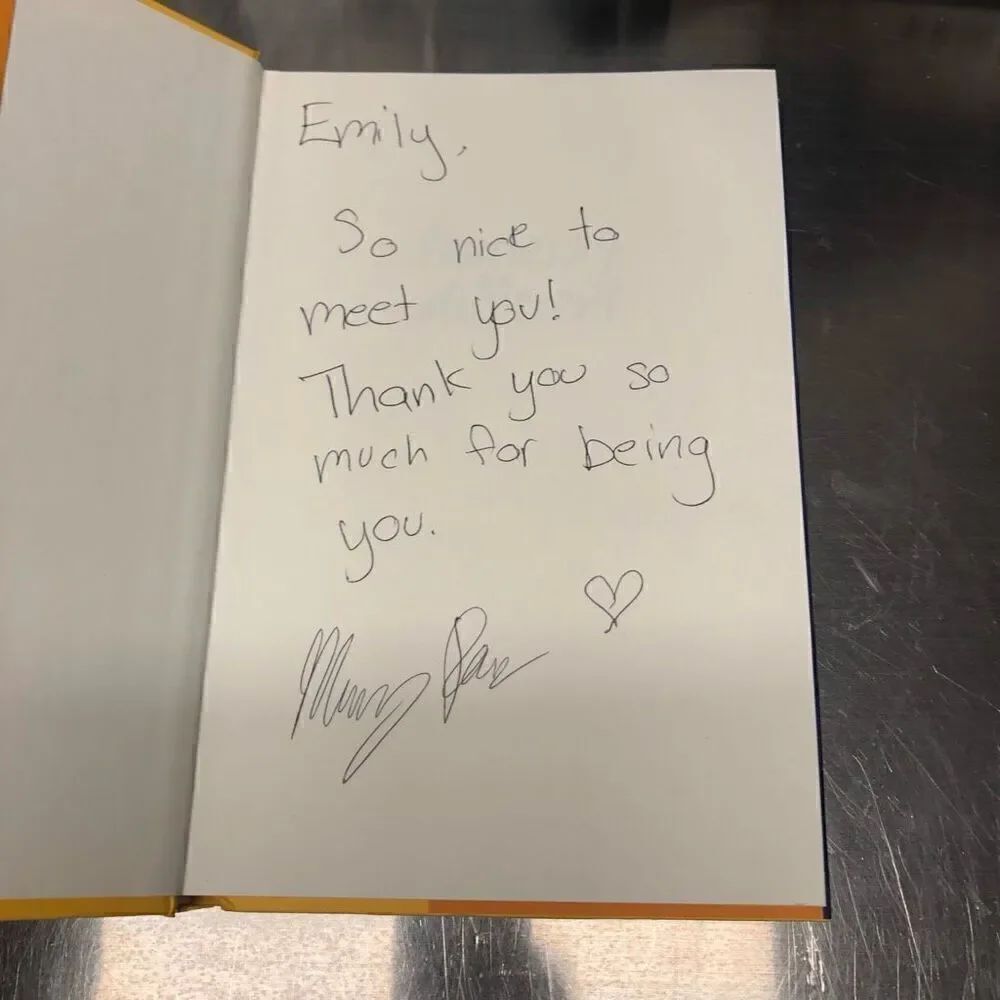 Emily,
So nice to
meet you!
Thank you so
much for being
you.